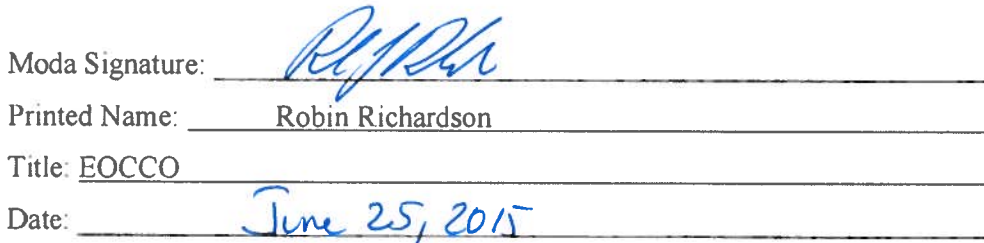 Moda Signature:
Printed Name: Robin Richardson
Title: EOCCO
Date: June 25, 2015